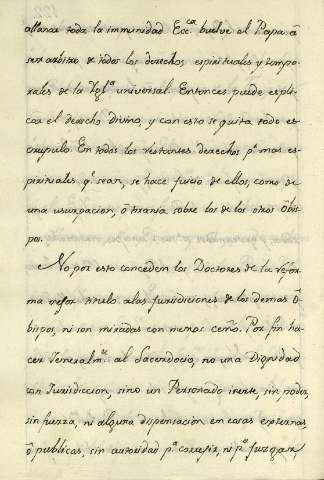 allanar toda la immunidad Ecc.ca buelve el Papa á
ser arbitro de todos los derechos espirituales y tempo-
rales de la Igl.a universal. Entonces puede expli-
car el derecho divino, y con esto se quita todo es-
crupulo. En todos los restantes derechos p.r mas es-
pirituales q.e sean, se hace juicio de ellos, como de
una usurpacion, ó tirania sobre los de los otros Obis-
pos.
No por esto conceden los Doctores de la refor-
ma mejor titulo a las jurisdiciones de los demas O-
bispos, ni son mirados con menos ceño. Por fin ha-
cen generalm.te al Sacerdocio, no una Dignidad
con Jurisdiccion, sino un Personado inerte, sin poder,
sin fuerza, ni alguna dispensacion en casas externas,
ó publicas, sin autoridad p.a corregir, ni p.a juzgar